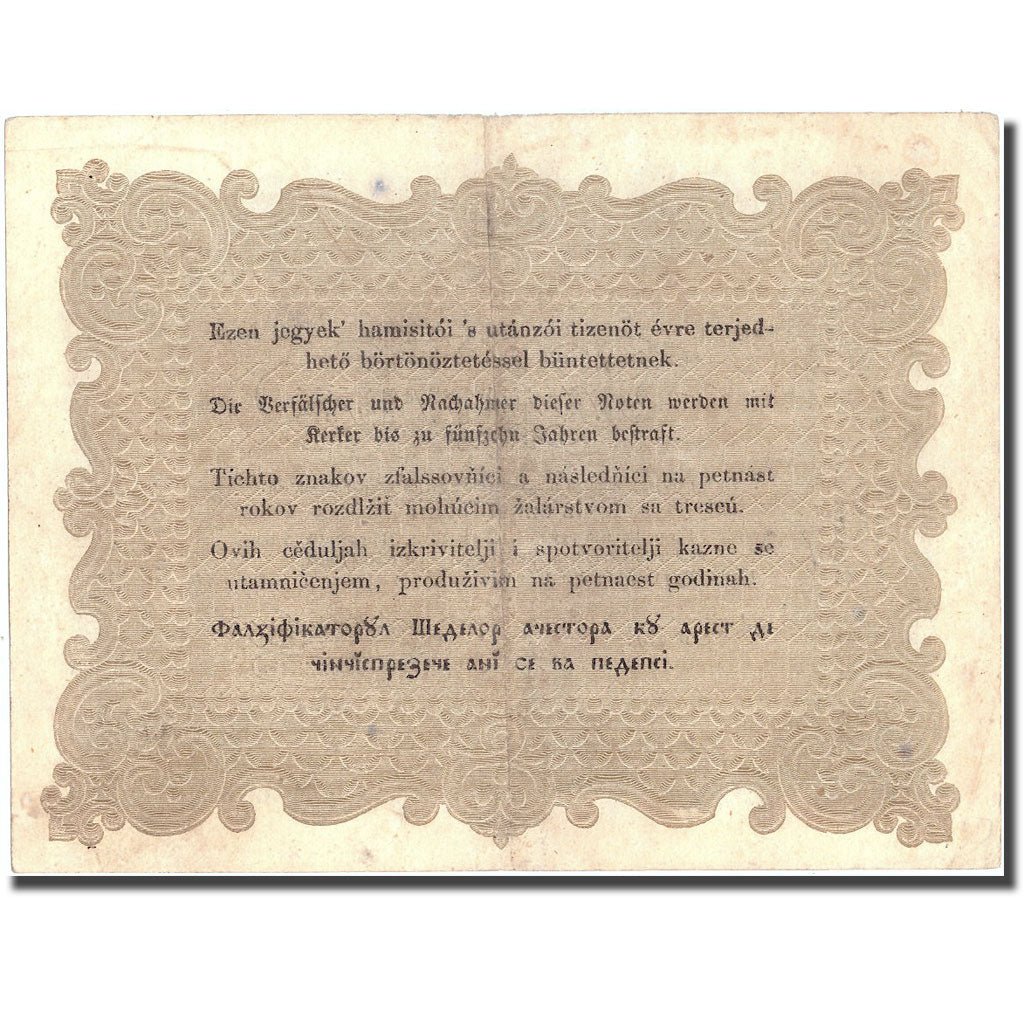 Ezen jegyek' hamisitói 's utánzói tizenöt évre terjed-
hető börtönöztetéssel büntettetnek.
Die Verfälscher und Nachahmer dieser Noten werden mit
Kerker bis zu fünfzehn Jahren bestraft.
Tichto znakov zfalssovňíci a následňíci na petnást
rokov rozdlžiť mohúcim žalárstvom sa trescú.
Ovih cěduljah izkrivitelji i spotvoritelji kazne se
utamničenjem, produživim na petnaest godinah.
Фалзіфікаторꙋл Шеделор ачестора кꙋ арест де
чінчĭспрезече анĭ се ва педепсі.